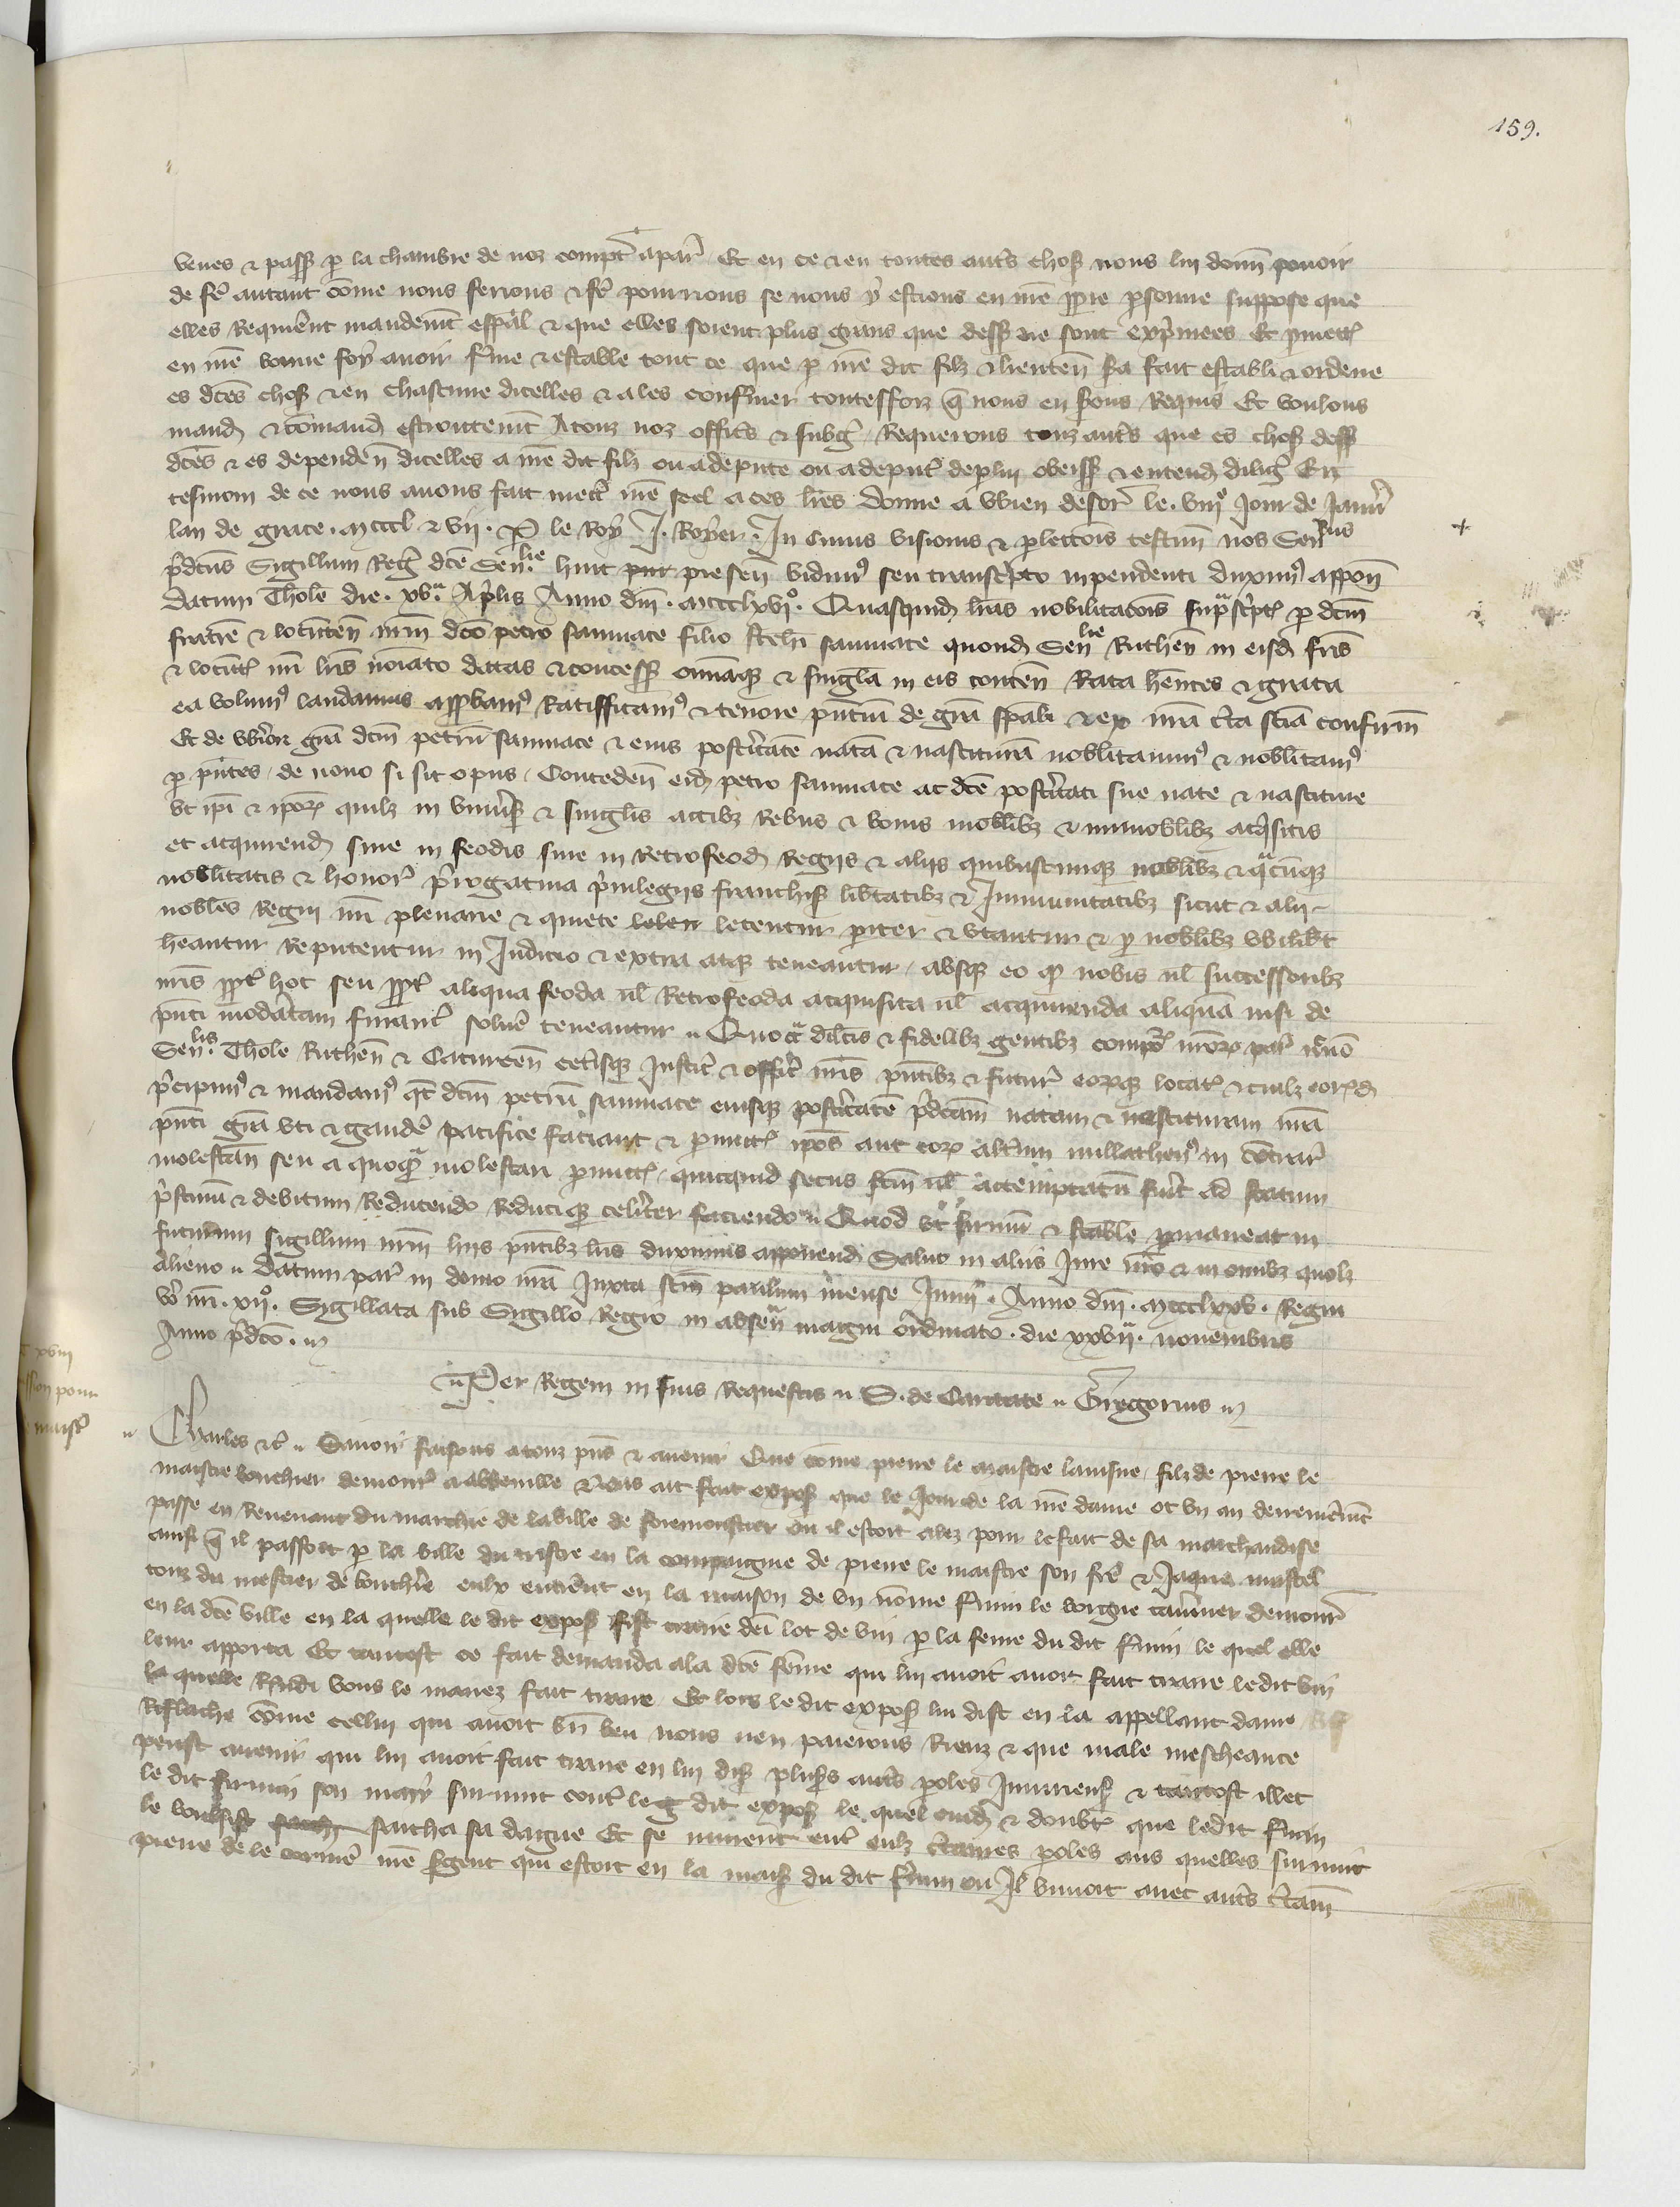 159.
venes & pass p la chambre de noz compt a par Et en ce & en toutes autˢ chos nous lui donñ povoir
de fe autant cōme nous ferions & fe pourrions se nous y estions en nrē ppre psonne suppose que
elles requierēt mandemt espal & que elles soient plus grans que dess ne sont expmees Et pmett
en nrē bonne foy avoir fme & estable tout ce que p nrē dit filz & lieuteñ sa fait establi & ordene
es dces chos & en chascune dicelles & a les confmer toutesfoiz q nous en srons requis Et voulons
mand & cōmand estroictemt A touz noz officˢ & subg requerons touz autˢ que es chos dess
dces & es dependeñ dicelles a nrē dit filz ou a depute ou a deput de p lui obeiss & entend dilig En
tesmoin de ce nous avons fait mectˢ nrē seel a ces lres donne a le viiiᵉ jour de Janvˢ
lan de grace mccclxvii. P le Roy J. Royer. In cuius visionis & plectois testim nos Señllus
pdctus Sigillum Reg dce Señlie huic pnr preseñ vidimˢ seu transcpto inpendenti duximˢ appoñ
datum Thole die xvᵃ Aplis Anno dm mccclxviiº. Quasquid lras nobilitacois supscpt p dcm
fratrē & locuteñ nrm dco petro saunnate filio stephi saunnate quond Señlie Rutheñ in eisd fris
& locutˢ nri lris noiato dattas & concess omaq & singla in eis conteñ Rata hentes & grata
ea volumˢ laudamus approbamˢ Ratifficamˢ & tenore pntium de gra spali & ex nra cta scia confirm
Et de vbiori gra dcm petrum saunnate & eius postitatē natā & nascituram noblitavimˢ & noblitamˢ
p pntes de novo si sit opus Concedeñ eid petro saunnate ac dce postitati sue nate & nasciture
vt ipi & ipor quilz in vnivˢ & singlis actibz rebus & bonis moblibz & immoblibz acqsitis
et acquirend sive in feodis sive in retrofeod regiis & aliis quibuscumque noblibz & qcūque
noblitatis & honorˢ progativa privilegiis franchis libtatibz & Immunitatibz sicut & alii
nobles Regni nri plenarie & quiete leten letentur piter & utantur & p noblibz ubilibt
heantur reputentur in Iudicio & extra atq teneantur absq eo q nobis ul successoribz
nris ppt hoc seu ppt aliqua feoda ul retrofeoda acquisita ul acquirenda aliquā nisi de
pnti modatam financˢ solvē teneantur Quocᵃ dilcis & fidelibz gentibz compoˢ nror par ncno
Señlis Thole Rutheñ & Caturceñ cetisq Iustic & offic nris pntibz & futurˢ eorq locat & cuilz eord
pcipimˢ & mandamˢ qt dcm petrū saunnate eiusq postitatē pdcam natam & nascituram nra
pnti gra uti & gaudē pacifice faciant & pmitt ipos aut eor altum nullathenˢ in cotrar
molestañ seu a quoqᵃ molestari pmitt quicquid secus fcm ul attemptatū fuit ad statum
pstinū & debitum reducendo reduciq celiter faciendo Quod ut firmū & stable pmaneat in
futurum sigillum nrm hiis pntibz lris duximus apponend Salvo in aliis Iure nro & in omibz quolz
alieno datum par in domo nra Iuxta scm paulum mense Junii. Anno dm. mccclxxv. Regni
vo nri. xiiº. Sigillata sub Sigillo Regio in absenᵃ magni ordinato. die xxviiᵃ. novembris
Anno pdco.
Per Regem in suis Requestis S. de Caritate Gregorius
Charles &c Savoir faisons a touz pns & avenir Que cōme pierre le maistre lainsne filz de pierre le
maistre bouchier demour a abbeville Nous ait fait expos que le jour de la nrē dame ot un an derreneremt
passe en revenant du marchie de la ville de foremoustier ou il estoit alez pour le fait de sa marchandise
ainsi q il passoit p la ville du tistre en la compaignie de pierre le maistre son fre & Jaque mustel
touz du mestier de bouchie eulx entrerēt en la maison de un nōme Fmin le borgne tavrnier demour
en la dce ville en la quelle le dit expos fist traire demi lot de vin p la feme du dit Fmin le quel elle
leur apporta Et tantost ce fait demanda a la dce feme qui lui avoit avoit fait traire ledit vin
la quelle respndi vous le mavez fait traire Et lors le dit expos lui dist en la appellant dame
Rislache cōme cellui qui avoit bn beu nous nen paierons Rienz & que male mescheance
peust avenir qui lui avoit fait traire en lui dis plusˢ autˢ poles Iniurieus & tantost illec
le dit firmin son mary survint contˢ le dit expos le quel cuid & doubt que ledit Fmin
le voulsist sach sacha sa dague Et se murent entˢ eulx ctaines poles aus quelles survint
pierre de le cormer nrē sgent qui estoit en la mais du dit Fmin ou Il buvoit avec autˢ ctain